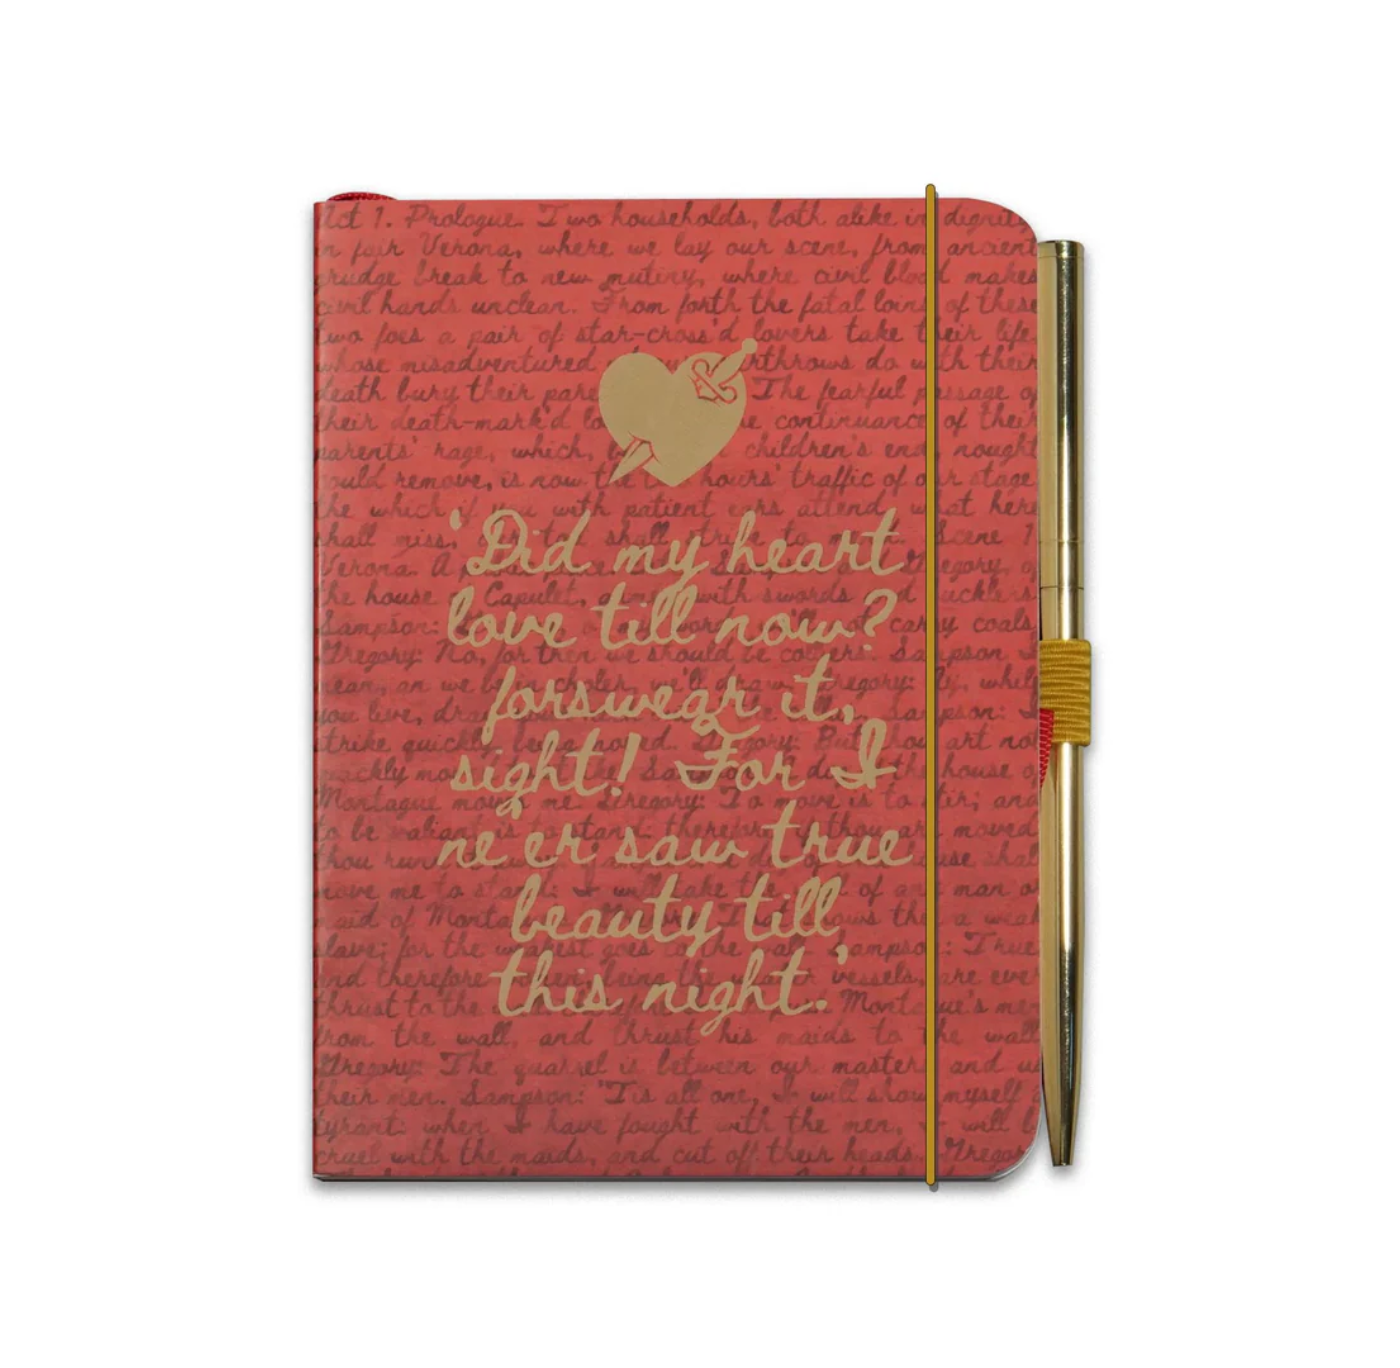 Act 1. Prologue. Two households, both alike in dignit
in fair Verona, where we lay our scene, from ancient
grudge break to new mutiny, where civil blood makes
civil hands unclean. From forth the fatal loins of these
two foes a pair of star-cross'd lovers take their life
whose misadventured rthrows do with their
death bury their pare The fearful passage of
their death-mark'd lo e continuance of their
parents' rage, which, b children's end, nought
could remove, is now the hours' traffic of our stage
the which if you with patient ears attend, what here
shall miss, our toil shall strive to mend. Scene 1
'Did my heart
love till now?
forswear it,
sight! For I
ne'er saw true
beauty till
this night.'
Verona. A Gregory, of
the house of Capulet, armed with swords and bucklers
Sampson: carry coals
Gregory: No, for then we should be colliers. Sampson: I
mean, an we be in choler, we'll draw. Gregory: Ay, while
you live, dra Sampson: I
strike quickly being moved. Gregory: But thou art not
quickly mo the house of
Montague moves me. Gregory: To move is to stir; and
to be valiant is to stand: therefore, if thou art moved
thou runn
move me to stand: I will take the of any man or
maid of Monta That shows thee a weak
slave; for the weakest goes to the wall. Sampson: True
and therefore women, being the weaker vessels, are ever
thrust to the Montague's men
from the wall, and thrust his maids to the wall
Gregory: The quarrel is between our masters and us
their men. Sampson: 'Tis all one, I will show myself a
tyrant: when I have fought with the men, I will b
cruel with the maids, and cut off their heads. Gregor